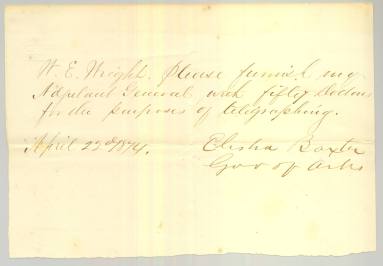 W. E. Wright. Please furnish my
Adjutant General with fifty Dollars
for the purposes of telegraphing.
April 22d 1874. Elisha Baxter
Gov of Arks